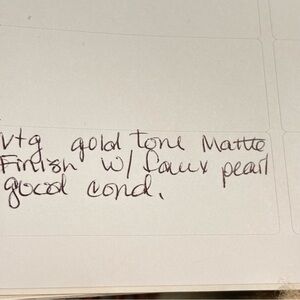 vtg gold tone Matte
Finish w/ faux pearl
good cond.